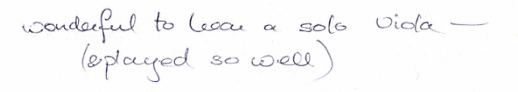 wonderful to hear a solo viola —
(& played so well)